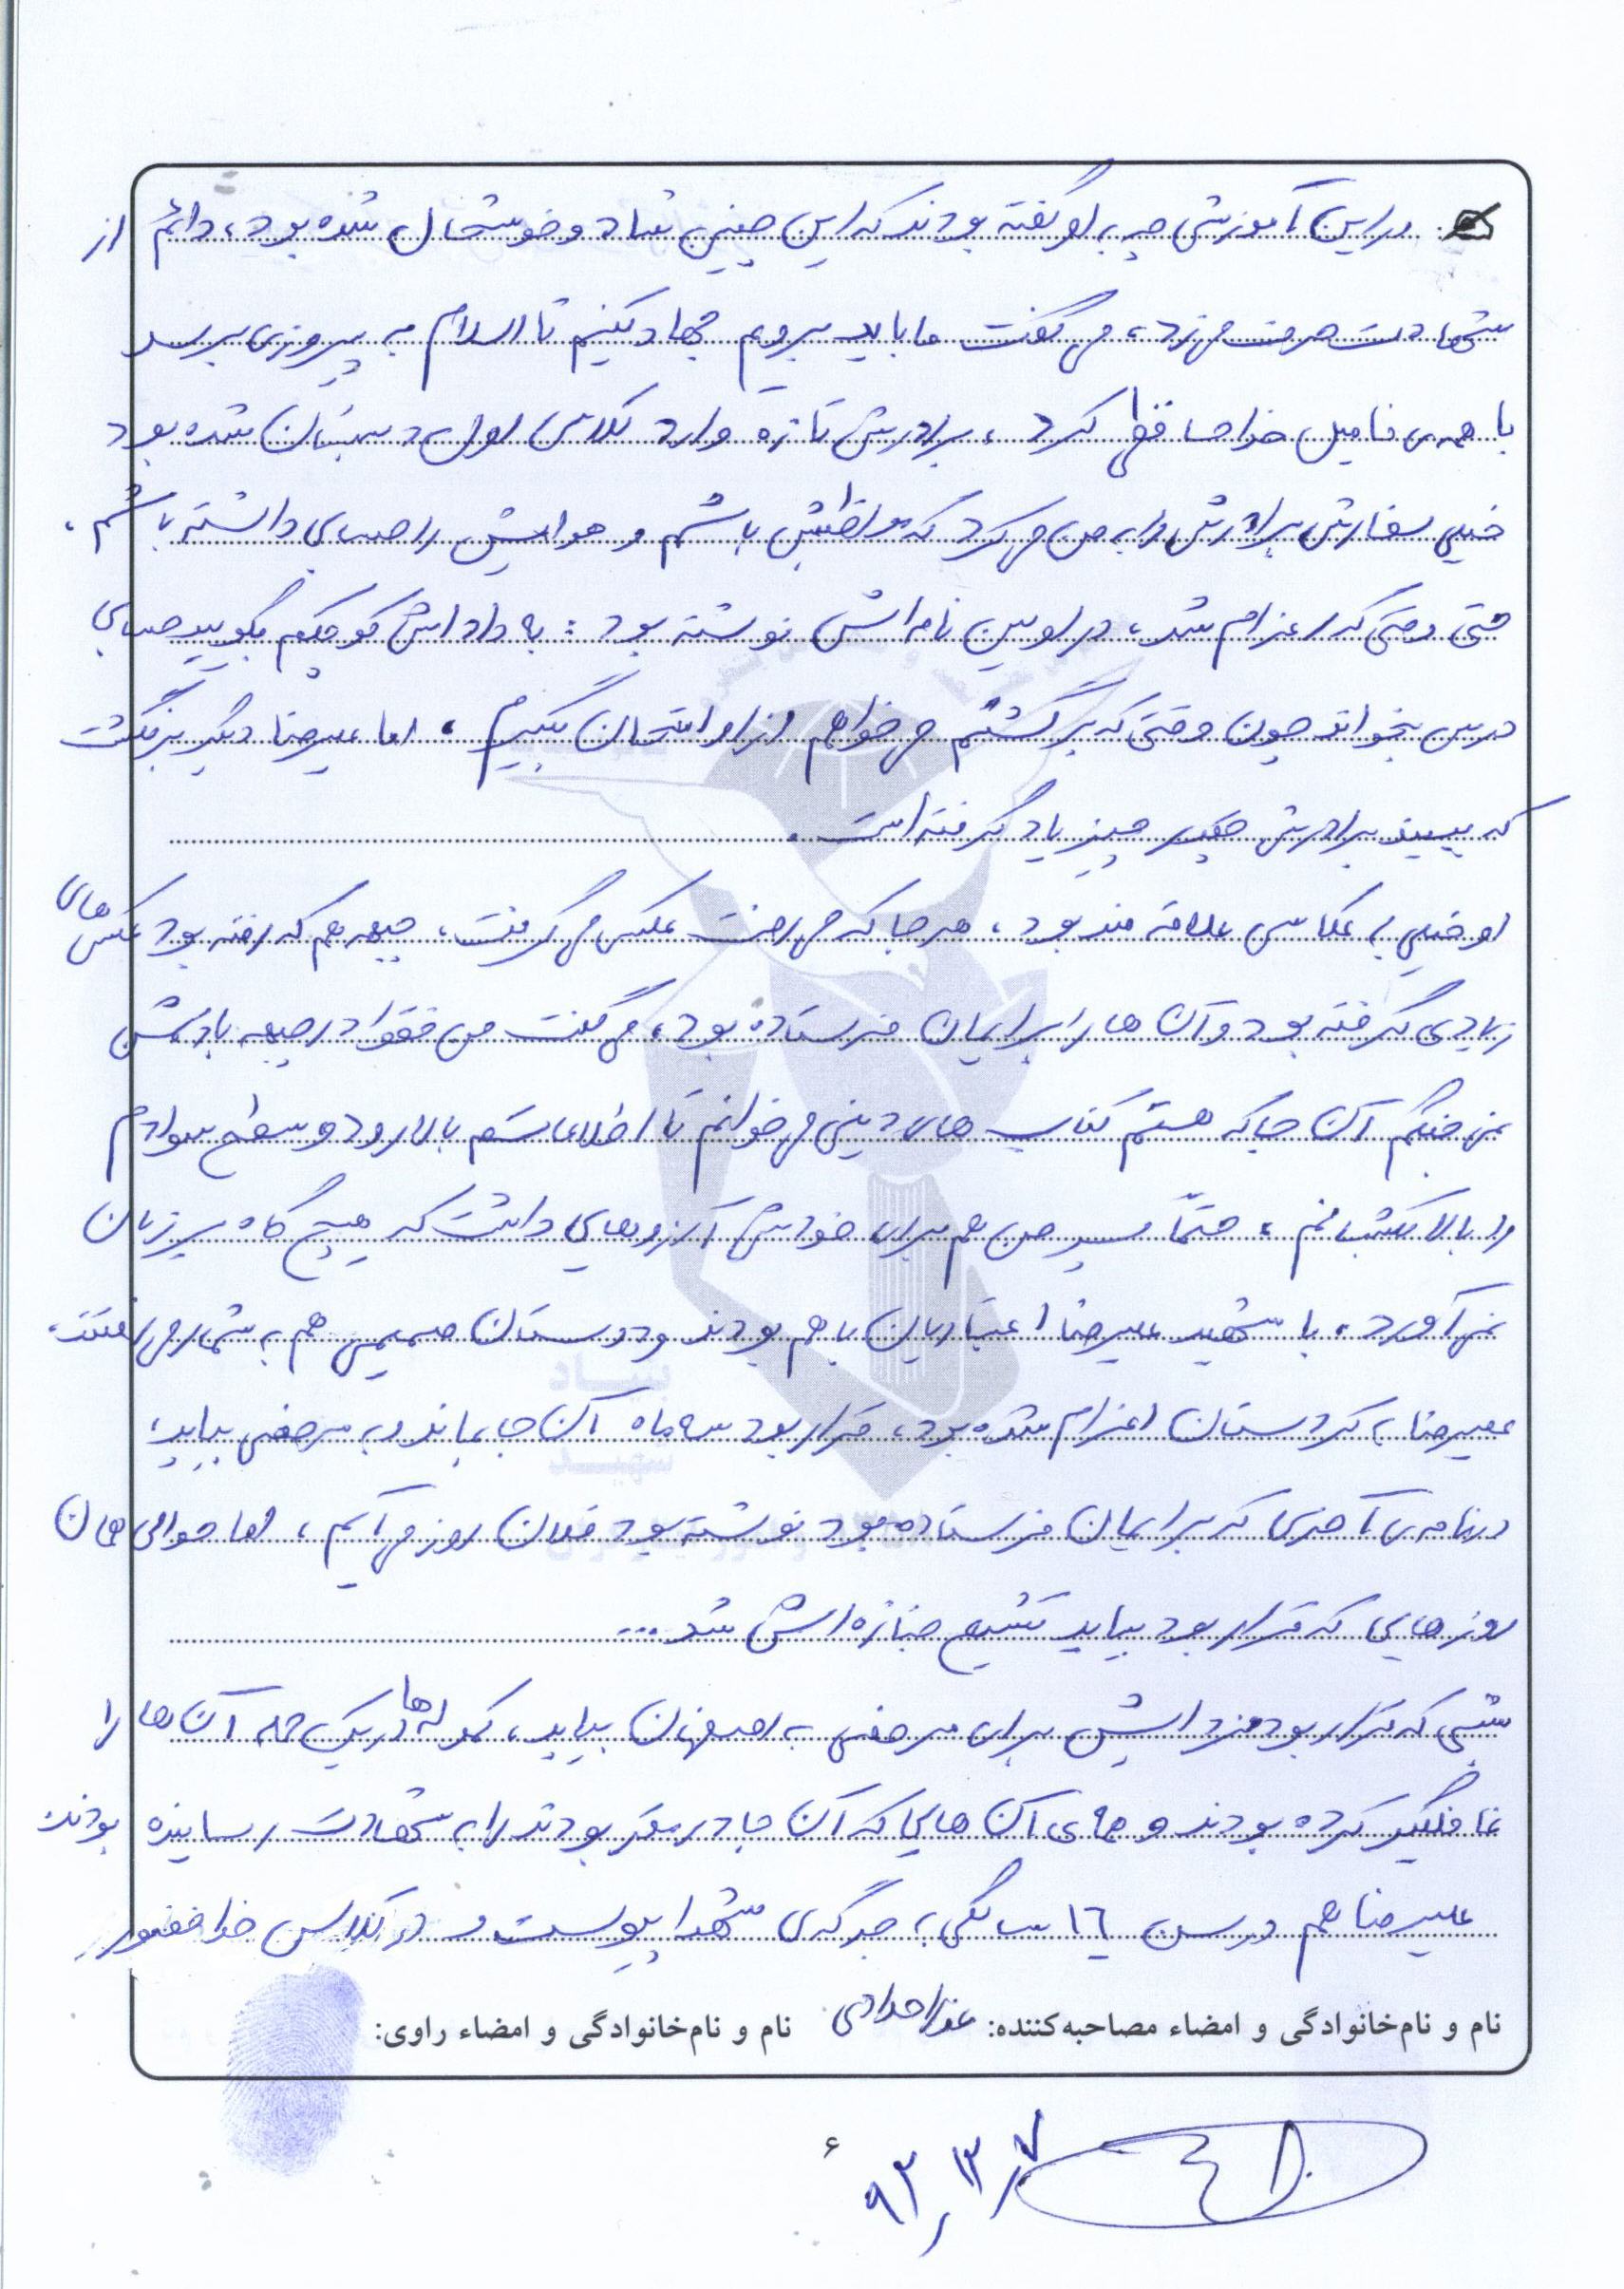 در این آموزشی چه به او گفته بودند که این چنین شاد و خوشحال شده بود، دائم از
شهادت حرف می‌زد، می‌گفت ما باید برویم جهاد کنیم تا اسلام به پیروزی برسد
با همه‌ی فامیل خداحافظی کرد، برادرش تازه وارد کلاس اول دبستان شده بود
خیلی سفارش برادرش را به من می‌کرد که مواظبش باشم و هوایش را حسابی داشته باشم،
حتی وقتی که اعزام شد، در اولین نامه‌اش نوشته بود: به داداش کوچکم بگویید حسابی
درس بخواند چون وقتی که برگشتم می‌خواهم از او امتحان بگیرم. اما علیرضا دیگر برنگشت
که ببیند برادرش چقدر چیز یاد گرفته است.
او خیلی به عکاسی علاقه مند بود، هر جا که می‌رفت عکس می‌گرفت، جبهه هم که رفته بود عکس‌های
زیادی گرفته بود و آن ها را برایمان فرستاده بود، می‌گفت من فقط در جبهه با دشمن
نمی‌جنگم آن جا که هستم کتاب های دینی می‌خوانم تا اطلاعاتم بالا رود و سطح سوادم
را بالا بکشانم، حتماً پسر من هم برای خودش آرزوهایی داشت که هیچ گاه بر زبان
نمی‌آورد، با شهید علیرضا اعتباریان با هم بودند و دوستان صمیمی هم به شمار می‌رفتند،
علیرضا به کردستان اعزام شده بود، قرار بود سه ماه آن جا بماند و به مرخصی بیاید،
در نامه‌ی آخری که برایمان فرستاده بود نوشته بود فلان روز می‌آیم، اما حوالی همان
روزهایی که قرار بود بیاید تشییع جنازه‌اش شد...
شبی که قرار بود فردایش برای مرخصی به اصفهان بیاید، کموله‌ها در یک حمله آن ها را
غافلگیر کرده بودند و همه‌ی آن هایی که آن جا در مقر بودند را به شهادت رسانیده بودند
علیرضا هم در سن ۱۶ سالگی به جرگه‌ی شهدا پیوست و در کلاس خدا حضور
نام و نام‌خانوادگی و امضاء مصاحبه‌کننده: عذرا حدادی نام و نام‌خانوادگی و امضاء راوی:
۶